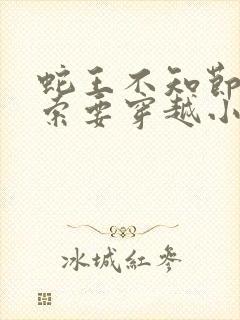 蛇王不知節
索要穿越小
冰城紅參